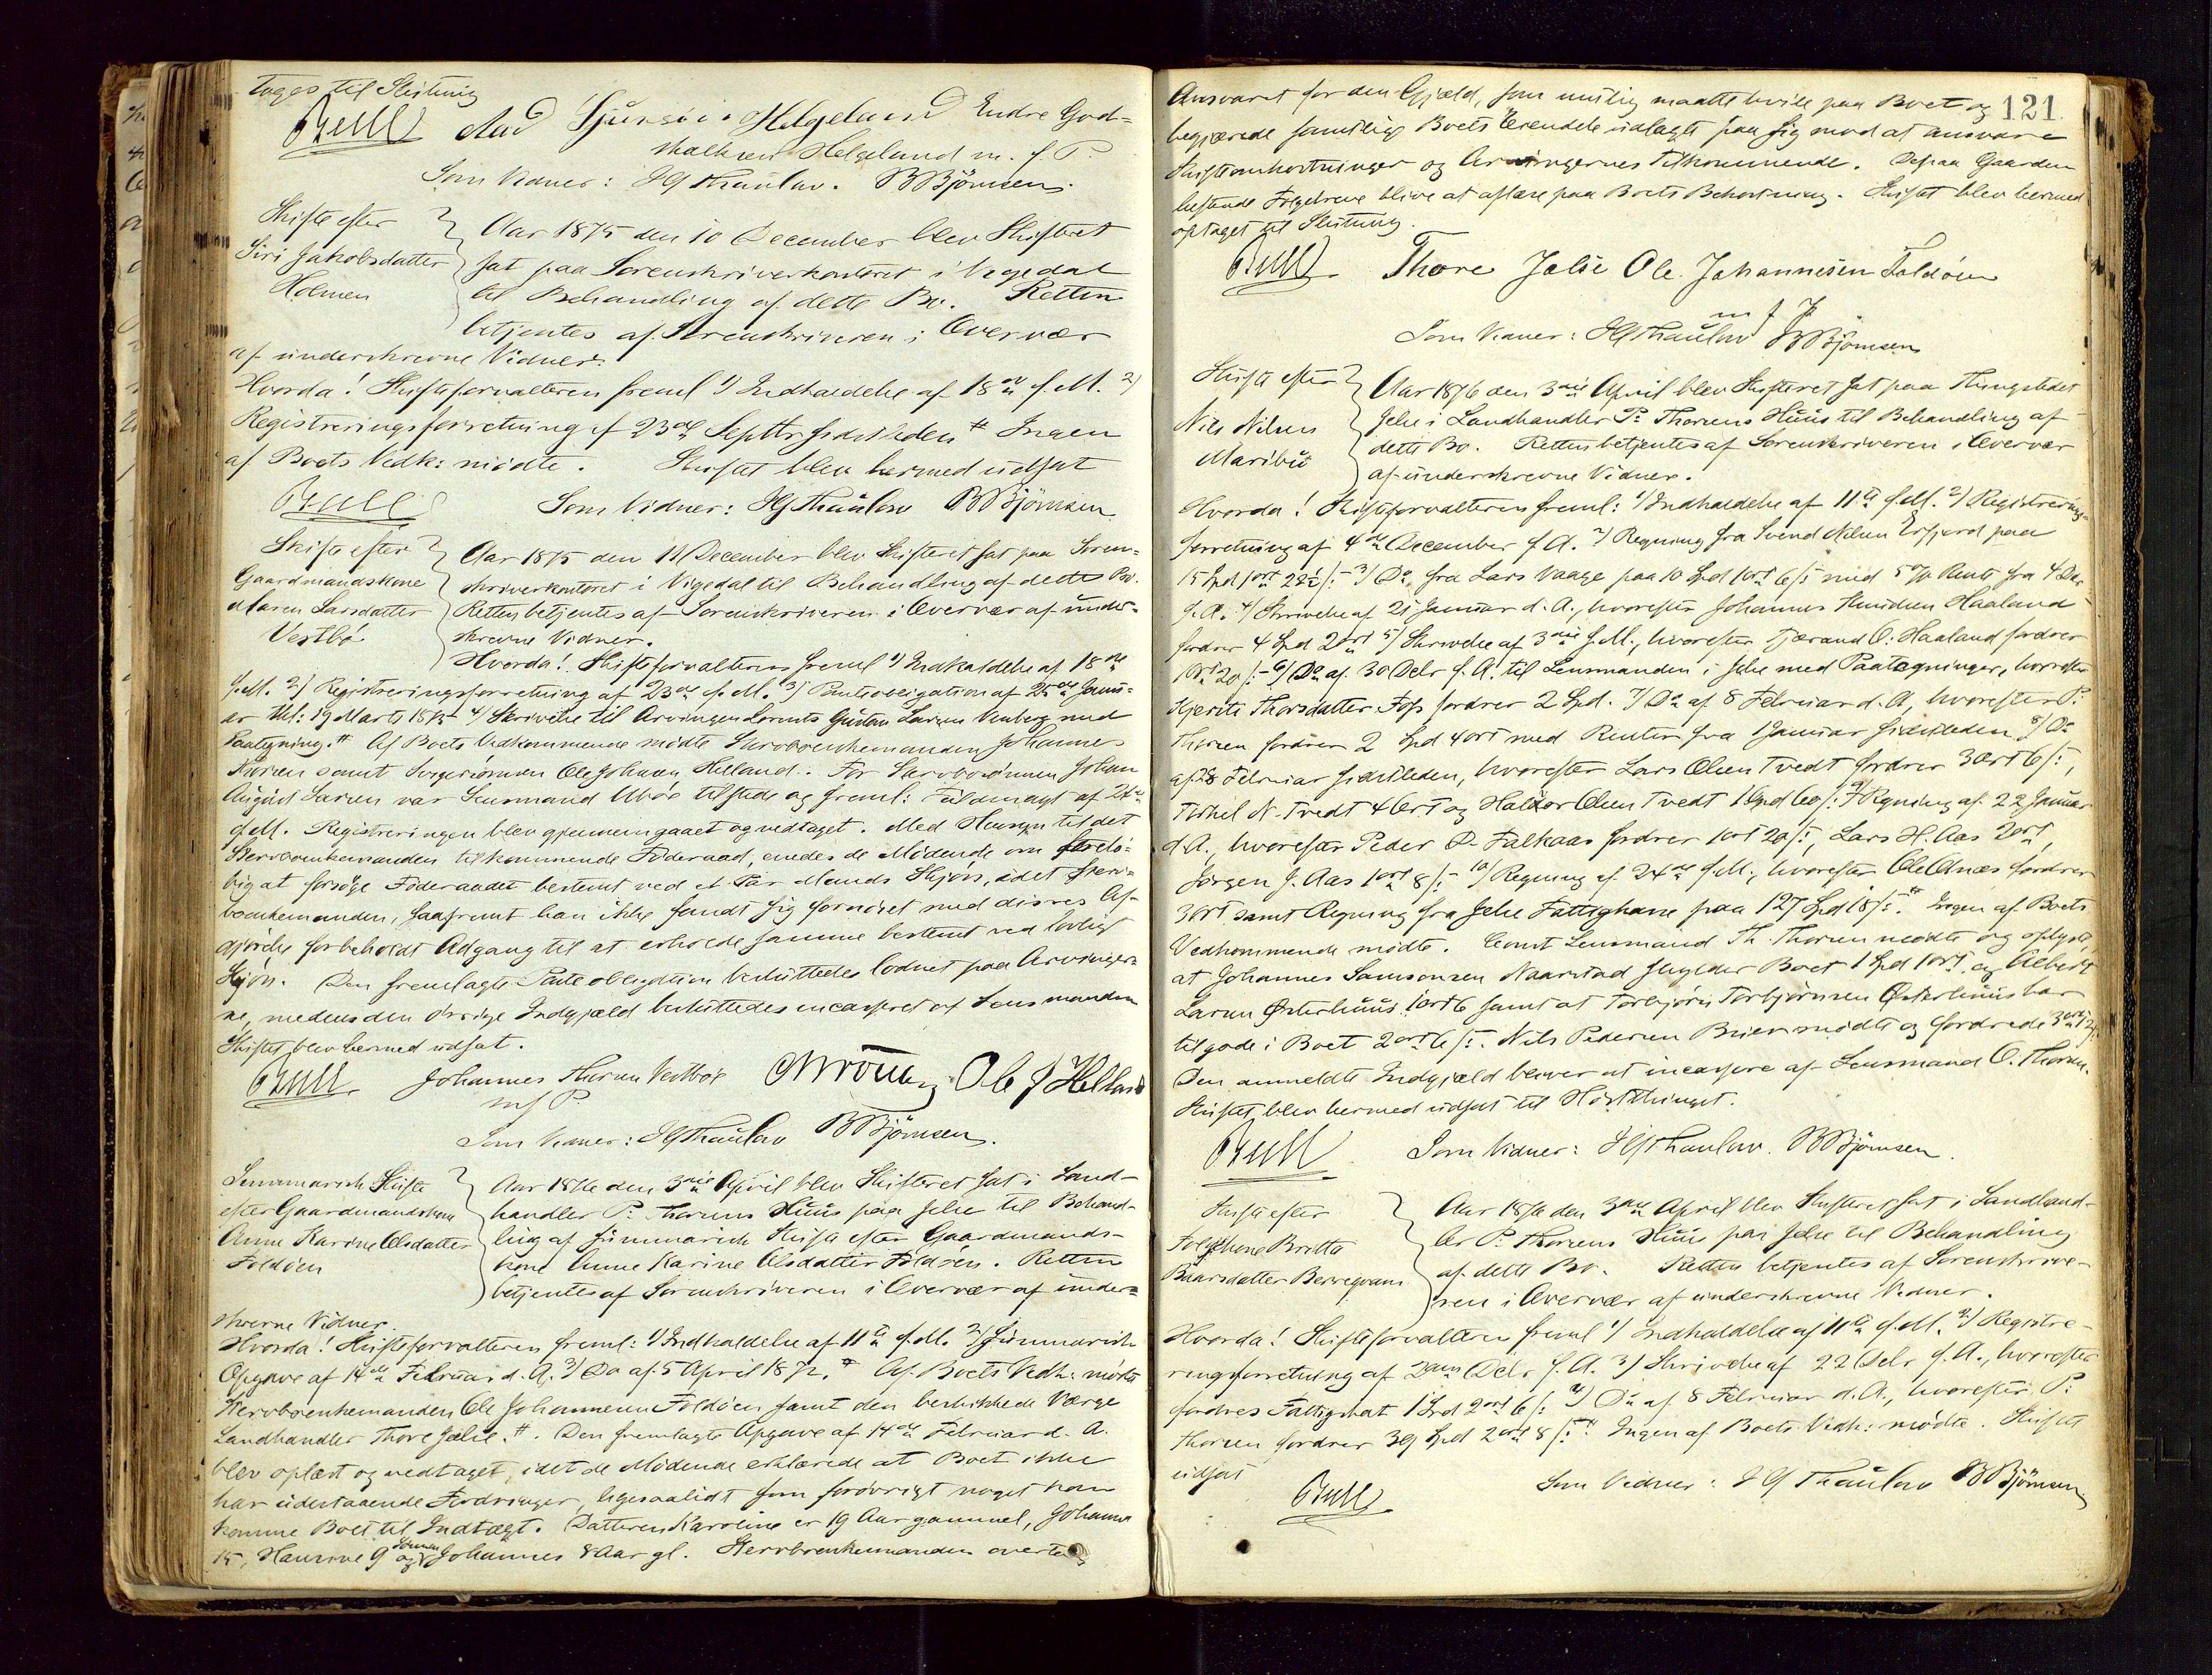 toges til Slutning
Bull Aad Sjursøn Helgeland Endre God-
skalksen Helgeland m. f. P.
Som Vidner: HJThaulow. BBjörnsen.
Skifte efter
Siri Jakobsdatter
Holmen
Aar 1875 den 10 December blev Skifteret
sat paa Sorenskriverkontoret i Vigedal
til Behandling af dette Bo. Retten
betjentes af Sorenskriveren i Overvær
af underskrevne Vidner.
Hvorda! Skifteforvalteren freml 1) Indkaldelse af 18de f. M. 2)
Registreringsforretning af 23de Septbr sidstleden # Ingen
af Boets Vedk: mødte. Skiftet blev hermed udsat
Bull Som Vidner: HJThaulow BBjörnsen
Skifte efter
Gaardmandskone
Maren Larsdatter
Vestbø
Aar 1875 den 11 December blev Skifteret sat paa Soren-
skriverkontoret i Vigedal til Behandling af dette Bo.
Retten betjentes af Sorenskriveren i Overvær af under-
skrevne Vidner.
Hvorda! Skifteforvalteren freml 1) Indkaldelse af 18de
f. M. 2) Registreringsforretning af 23de f. M. 3) Panteobligation af 25de Janu-
ar thl: 19 Marts 1875 4) Skrivelse til Arvingen Lorents Gustav Larsen med
Paategning. # Af Boets Vedkommende mødte Stervboenkemanden Johannes
samt Ole Johan Helland. For Stervbosønnen Johan
August Larsen var Lensmand tilstede og freml: Fuldmagt af 24de
f. M. Registreringen blev gjennemgaaet og vedtaget. Med Hensyn til det
Stervboenkemanden tilkommende Föderaad, enedes de Mødende om forelö-
big at forsøge Föderaadet bestemt ved et Par Mands Skjøn, idet Stervbo-
enkemanden, saafremt han ikke fandt sig fornøiet med disses Af-
gjørelse forbeholdt Adgang til at erholde samme bestemt ved lovligt
Skjøn. Den fremlagte Panteobligation besluttedes lodnet paa Arvinger-
ne, medens den øvrige Indgjæld besluttedes incasseret af Lensmanden
Skiftet blev hermed udsat.
Bull Johannes Vestbøe Ole J Helland
m f P.
Som Vidner: HJThaulow BBjörnsen.
Summarisk Skifte
efter Gaardmandskone
Anne Karine Olsdatter
Foldøen
Aar 1876 den 3die April blev Skifteret sat i Land-
handler P. Thorsens Huus paa Jelse til Behand-
ling af summarisk Skifte efter Gaardmands-
kone Anne Karine Olsdatter Foldøen. Retten
betjentes af Sorenskriveren i Overvær af under-
skrevne Vidner.
Hvorda! Skifteforvalteren freml: 1) Indkaldelse af 11te f. M. 2) Summarisk
Opgave af 14de Februar d. A. 3) Do af 5 April 1872. # Af Boets Vedk: mødte
Stervboenkemanden Ole Johannesen Foldöen samt den beskikkede Værge
Landhandler Thore Jelse. #. Den fremlagte Opgave af 14de Februar d. A.
blev oplæst og vedtaget, idet de Mødende erklærede at Boet ikke
har udestaaende Fordringer, ligesaalidt som forövrigt noget kan
komme Boet til Indtægt. Datteren Karoline er 19 Aar gammel, Johanne
15, Hansine 9 og Sønnen Johannes 8 Aar gl. Stervboenkemanden overtog
121
Ansvaret for den Gjæld, som mulig maatte hvile paa Boet og
begjærede samtlige Boets Eiendele udlagte paa sig mod at ansvare
Skifteomkostninger og Arvingernes Tilkommende. De paa Gaarden
heftende Følgebreve blive at aflæse paa Boets Bekostning. Skiftet blev hermed
optaget til Slutning.
Bull. Thore Jelse Ole Johannesen Foldöen
m f P
Som Vidner: HJThaulow BBjörnsen
Skifte efter
Nils Nilsen
Maribu
Aar 1876 den 3die April blev Skifteret sat paa Thingstedet
Jelse i Landhandler P. Thorsens Huus til Behandling af
dette Bo. Retten betjentes af Sorenskriveren i Overvær
af underskrevne Vidner.
Hvorda! Skifteforvalteren freml: 1) Indkaldelse af 11te f. M. 2) Registrerings-
forretning af 4de December f. A. 2) Regning fra Svend Nilsen Erfjord paa
15 Spd 1ort 22½ /:- 3) Do fra Lars Vaage paa 10 Spd 1ort 6 /: med 5% Rente fra 4 Dec
f. A. 4) Skrivelse af 21 Januar d. A., hvorefter Johannes Knudsen Haaland
fordrer 4 Spd 2ort 5) Skrivelse af 3die f. M., hvorefter Tjærand O. Haaland fordrer
1ort 20 /:- 6) Do af 30 Decbr f. A. til Lensmanden i Jelse med Paategninger, hvorefter
Kjersti Thorsdatter Foss fordrer 2 Spd. 7) Do af 8 Februar d. A, hvorefter P.
Thorsen fordrer 2 Spd 4ort med Renter fra 1 Januar sidstleden 8) Do
af 28 Februar sidstleden, hvorefter Lars Olsen Tvedt fordrer 3 ort 6 /:,
Torkel N. Tvedt 4 Ort og Haldor Olsen Tvedt 1 Spd 60 /: 9) Regning af 22 Januar
d. A., hvorefter Peder P. Falkaas fordrer 1ort 20 /:, Lars H. Aas 2ort,
Jørgen J. Aas 1ort 8 /:- 10) Regning af 24de f. M., hvorefter Ole Anes fordrer
3 ort samt Regning fra Jelse Fattigkasse paa 127 Spd 18 /:. # Ingen af Boets
Vedkommende mødte. Const Lensmand Th. Thorsen mødte og oplyste,
at Johannes Samsonsen Naarstad skylder Boet 1 Spd 1ort og Albert
Larsen Østerhuus 1ort 6 samt at Torbjørn Torbjørnsen Østerhuus har
tilgode i Boet 2ort 6 /:. Nils Pedersen mødte og fordrede 3ort
Den anmeldte Indgjæld bliver at incassere af Lensmand O. Thorsen.
Skiftet blev hermed udsat til Høstthinget.
Bull Som Vidner: HJThaulow. BBjörnsen.
Skifte efter
Folgekone Britta
Baarsdatter
Aar 1876 den 3die April blev Skifteret sat i Landhand-
ler P. Thorsens Huus paa Jelse til Behandling
af dette Bo. Retten betjentes af Sorenskrive-
ren i Overvær af underskrevne Vidner.
Hvorda! Skifteforvalteren freml 1) Indkaldelse af 11te f. M. 2) Registre-
ringsforretning af 2den Decbr f. A. 3) Skrivelse af 22 Decbr f. A., hvorefter
fordres Fattigskat 1 Spd 2ort 6 /: 4) Do af 8 Februar d. A., hvorefter P.
Thorsen fordrer 39 Spd 2ort 8 /: # Ingen af Boets Vedk: mødte. Skiftet
udsat
Bull Som Vidner: HJThaulow BBjörnsen